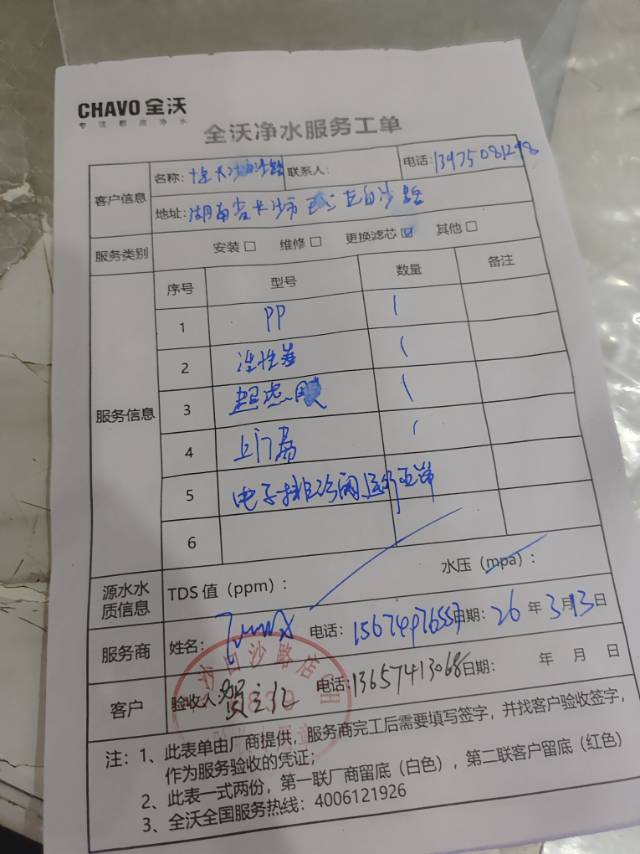 CHAVO 全沃
专注厨房净水
全沃净水服务工单
客户信息 名称: 长沙白沙路 联系人: 电话: 13975081298
地址: 湖南省长沙市 区白沙路
服务类别 安装□ 维修□ 更换滤芯☑ 其他□
服务信息 序号 型号 数量 备注
1 PP 1
2 活性炭 1
3 超滤膜 1
4 上门费 1
5 电子排冷阀 运行正常
6
源水水质信息 TDS 值（ppm）: 水压（mpa）:
服务商 姓名: 电话: 15674976557 日期: 26 年 3 月 13 日
客户 验收人 贺主任 电话: 13657413068 日期: 年 月 日
沙白沙路店
注: 1、此表单由厂商提供，服务商完工后需要填写签字，并找客户验收签字，
作为服务验收的凭证；
2、此表一式两份，第一联厂商留底（白色），第二联客户留底（红色）
3、全沃全国服务热线: 4006121926